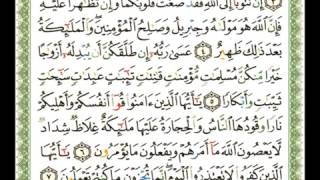 إِن تَتُوبَا إِلَى ٱللَّهِ فَقَدْ صَغَتْ قُلُوبُكُمَا وَإِن تَظَٰهَرَا عَلَيْهِ
فَإِنَّ ٱللَّهَ هُوَ مَوْلَىٰهُ وَجِبْرِيلُ وَصَٰلِحُ ٱلْمُؤْمِنِينَ وَٱلْمَلَٰٓئِكَةُ
بَعْدَ ذَٰلِكَ ظَهِيرٌ ٤ عَسَىٰ رَبُّهُۥٓ إِن طَلَّقَكُنَّ أَن يُبْدِلَهُۥٓ أَزْوَٰجًا
خَيْرًا مِّنكُنَّ مُسْلِمَٰتٍ مُّؤْمِنَٰتٍ قَٰنِتَٰتٍ تَٰٓئِبَٰتٍ عَٰبِدَٰتٍ سَٰٓئِحَٰتٍ
ثَيِّبَٰتٍ وَأَبْكَارًا ٥ يَٰٓأَيُّهَا ٱلَّذِينَ ءَامَنُوا۟ قُوٓا۟ أَنفُسَكُمْ وَأَهْلِيكُمْ
نَارًا وَقُودُهَا ٱلنَّاسُ وَٱلْحِجَارَةُ عَلَيْهَا مَلَٰٓئِكَةٌ غِلَاظٌ شِدَادٌ
لَّا يَعْصُونَ ٱللَّهَ مَآ أَمَرَهُمْ وَيَفْعَلُونَ مَا يُؤْمَرُونَ ٦ يَٰٓأَيُّهَا
ٱلَّذِينَ كَفَرُوا۟ لَا تَعْتَذِرُوا۟ ٱلْيَوْمَ إِنَّمَا تُجْزَوْنَ مَا كُنتُمْ تَعْمَلُونَ ٧